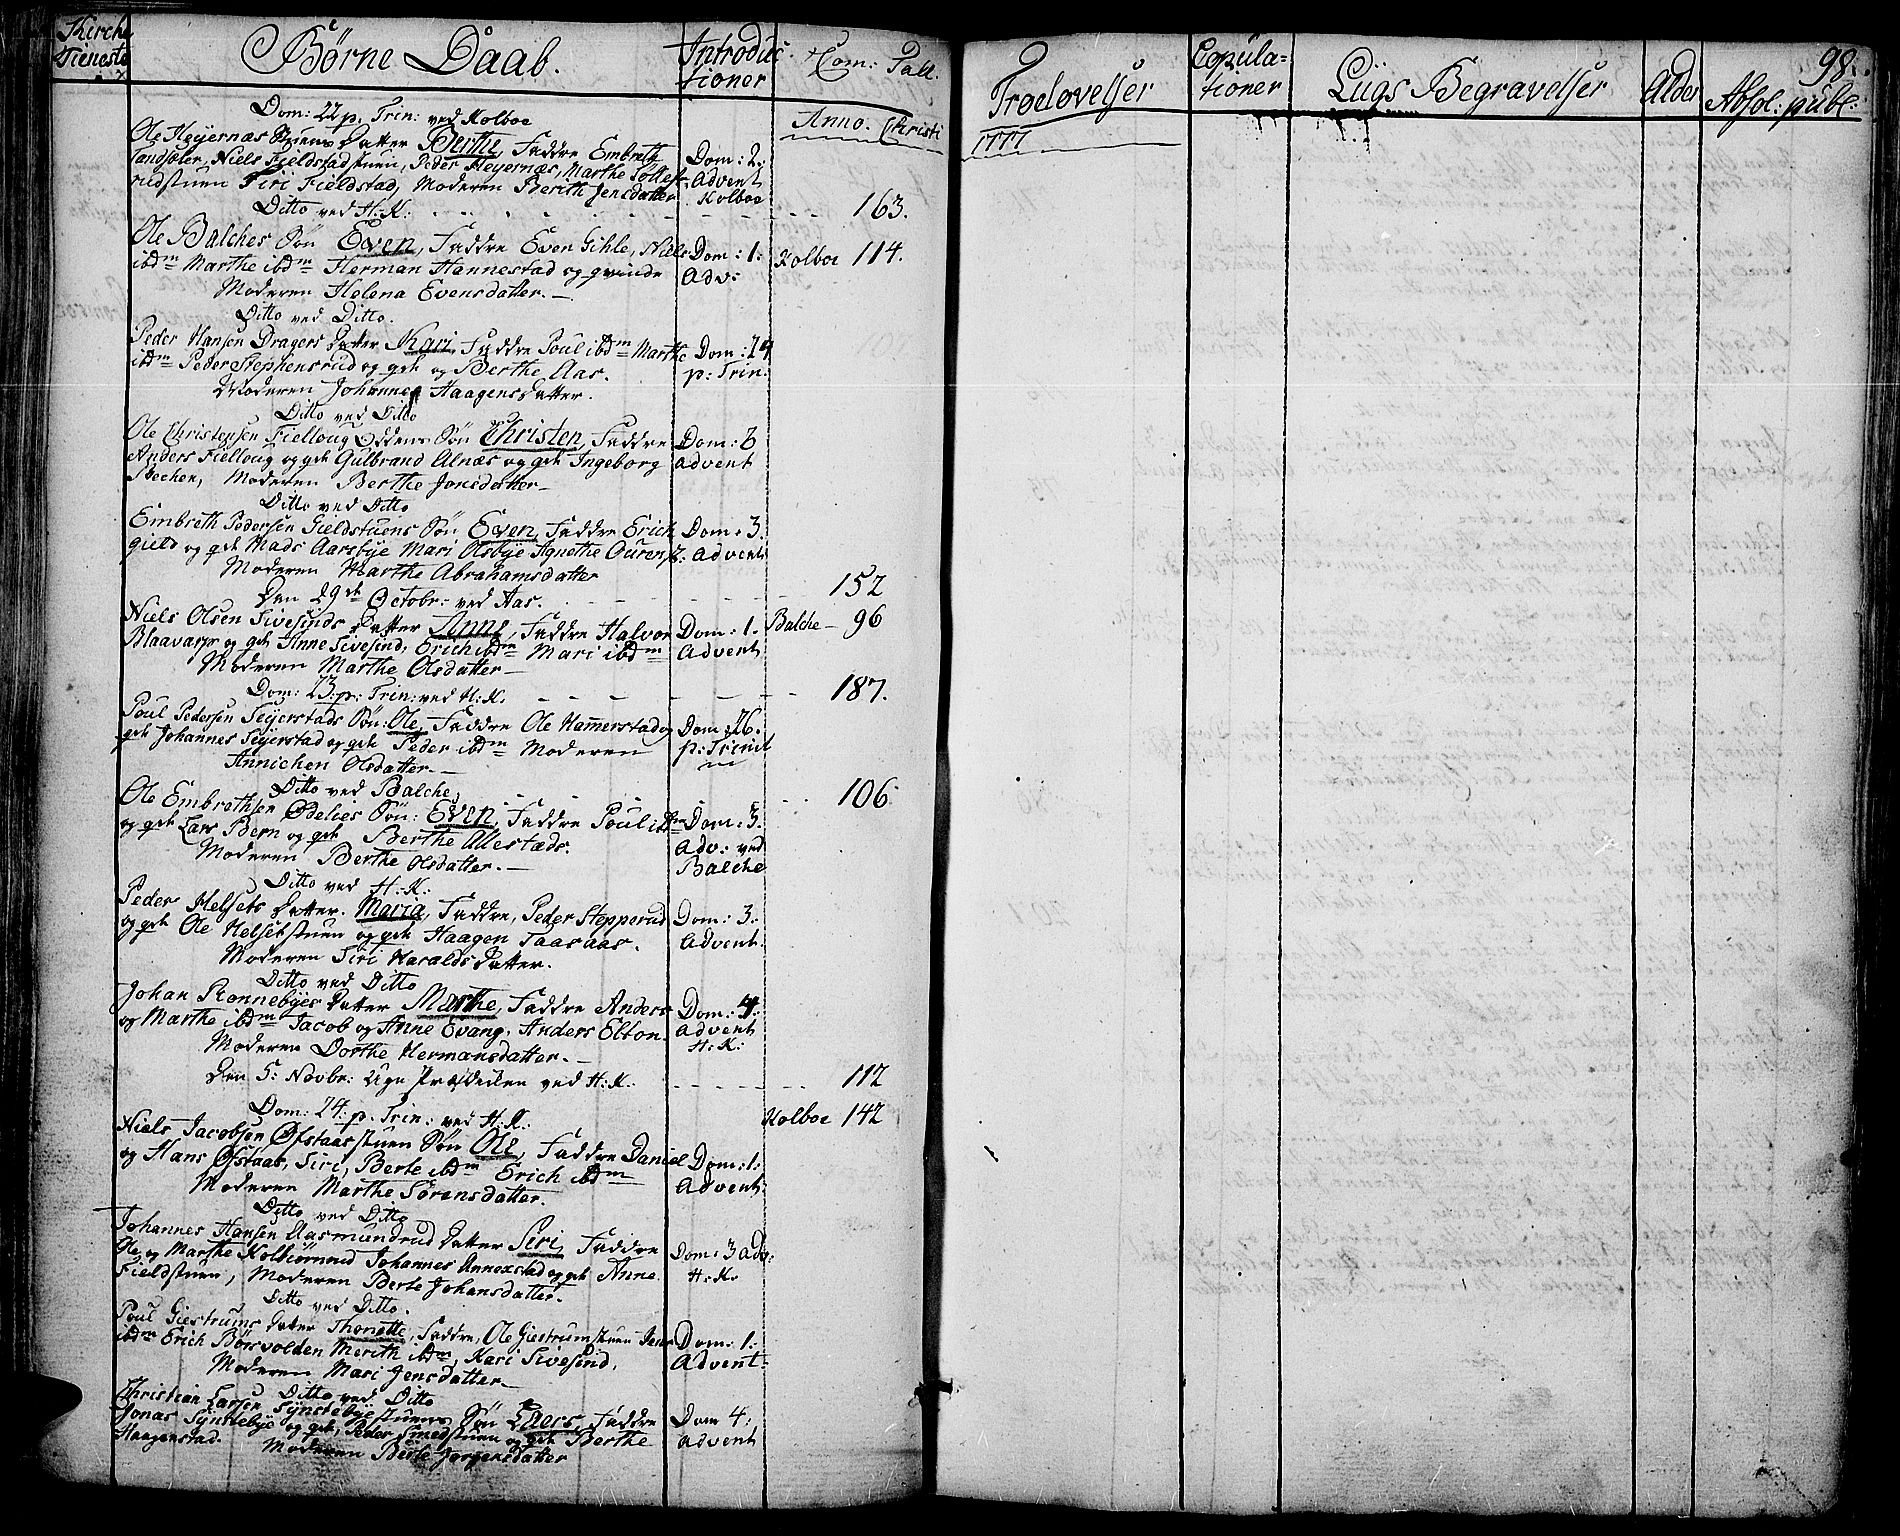 Kirche Tieneste
Børne Daab.
Introductioner
Com: Tall.
Trolovelser
Copulationer
Liigs Begravelser
Alder
Absol: publ:
98.
Anno Christi
1777
Dom: 22 p. Trin: ved Kolboe
Ole Heyernæs Stuens Datter Berthe, Faddre Embreth
Niels Fieldstadstuen, Peder Heyernæs, Marthe
Siri Fieldstad, Moderen Berith Jensdatter
Dom: 2: Advent Kolboe
Ditto ved H: K: 163.
Ole Balches Søn Even, Faddre Even Gihle, Niels
ibdm Marthe ibdm Herman Hannestad og qvinde
Moderen Helena Evensdatter.
Dom: 1: Adv:
Kolboe 114.
Ditto ved Ditto.
Peder Hansen Dragers Datter Kari, Faddre Poul ibdm Marthe
ibdm Peder Stephensrud og qde og Berthe Aas.
Moderen Johanne Haagensdatter.
Dom: 24 p: Trin:
Ditto ved Ditto
Ole Christensen Fielloug Eddens Søn Christen, Faddre
Anders Fielloug og qde Gulbrand Alnæs og qde Ingeborg
Bechen, Moderen Berthe Jonsdatter
Dom: 3 Advent
Ditto ved Ditto
Embreth Pedersen Gieldstuens Søn Even, Faddre Erich
gield og qde Mads Aarsbye Mari Olsbye Agnethe
Moderen Marthe Abrahamsdatter
Dom: 3. Advent
152
Den 29de Octobr: ved Aas.
Niels Olsen Sivesinds Datter Anne, Faddre Halvor
Blaavarp og qde Anne Sivesind, Erich ibdm Mari ibdm
Moderen Marthe Olsdatter
Dom: 1. Advent
Balche 96
Dom: 23: p: Trin: ved H: K. 187.
Poul Pedersen Seyerstads Søn: Ole, Faddre Ole Hammerstad og
qde Johannes Seyerstad og qde Peder ibdm Moderen
Annichen Olsdatter.
Dom: 26. p: Trinit
Ditto ved Balche, 106
Ole Embrethsen Ødelies Søn: Even, Faddre Poul ibdm
og qde Lars Bern og qde Berthe Allestads.
Moderen Berthe Olsdatter.
Dom: 3. Adv: ved Balche
Ditto ved H: K:
Peder Helsets Datter. Maria, Faddre, Peder Stepperud
og qde Ole Helsetstuen og qde Haagen Taasaas.
Moderen Siri Haraldsdatter.
Dom: 3: Advent.
Ditto ved Ditto
Johan Rønnebyes Datter Marthe, Faddre Anders
og Marthe ibdm Jacob og Anne Evang, Anders Elton
Moderen Dorthe Hermansdatter.
Dom: 4: Advent H: K:
Den 5: Novbr: Uge Prædiken ved H: K: 112
Dom: 24: p. Trin: ved H: K:
Kolboe 142
Niels Jacobsen Øfstaasstuen Søn Ole, Faddre Daniel
og Hans Øfstaas, Siri, Berte ibdm Erich ibdm
Moderen Marthe Sørensdatter.
Dom: 1: Advent:
Ditto ved Ditto
Johannes Hansen Aasmundrud Datter Siri, Faddre
Ole og Marthe Johannes Annexstad og qde Anne
Fieldstuen, Moderen Berte Johansdatter.
Dom: 3 adv: H: K.
Ditto ved Ditto.
Poul Giestrums Datter Thonette, Faddre, Ole Giestrumstuen
ibdm Erich Børsvolden Merith ibdm, Kari Sivesind,
Moderen Mari Jensdatter
Dom: 1: Advent
Ditto ved Ditto
Christian Larsen Synstebyestuens Søn Laers, Faddre
Jonas Synstebye og qde, Peder Smedstuen og qde Berthe
Haagenstad. Moderen Berte Jørgensdatter
Dom 4: Advent